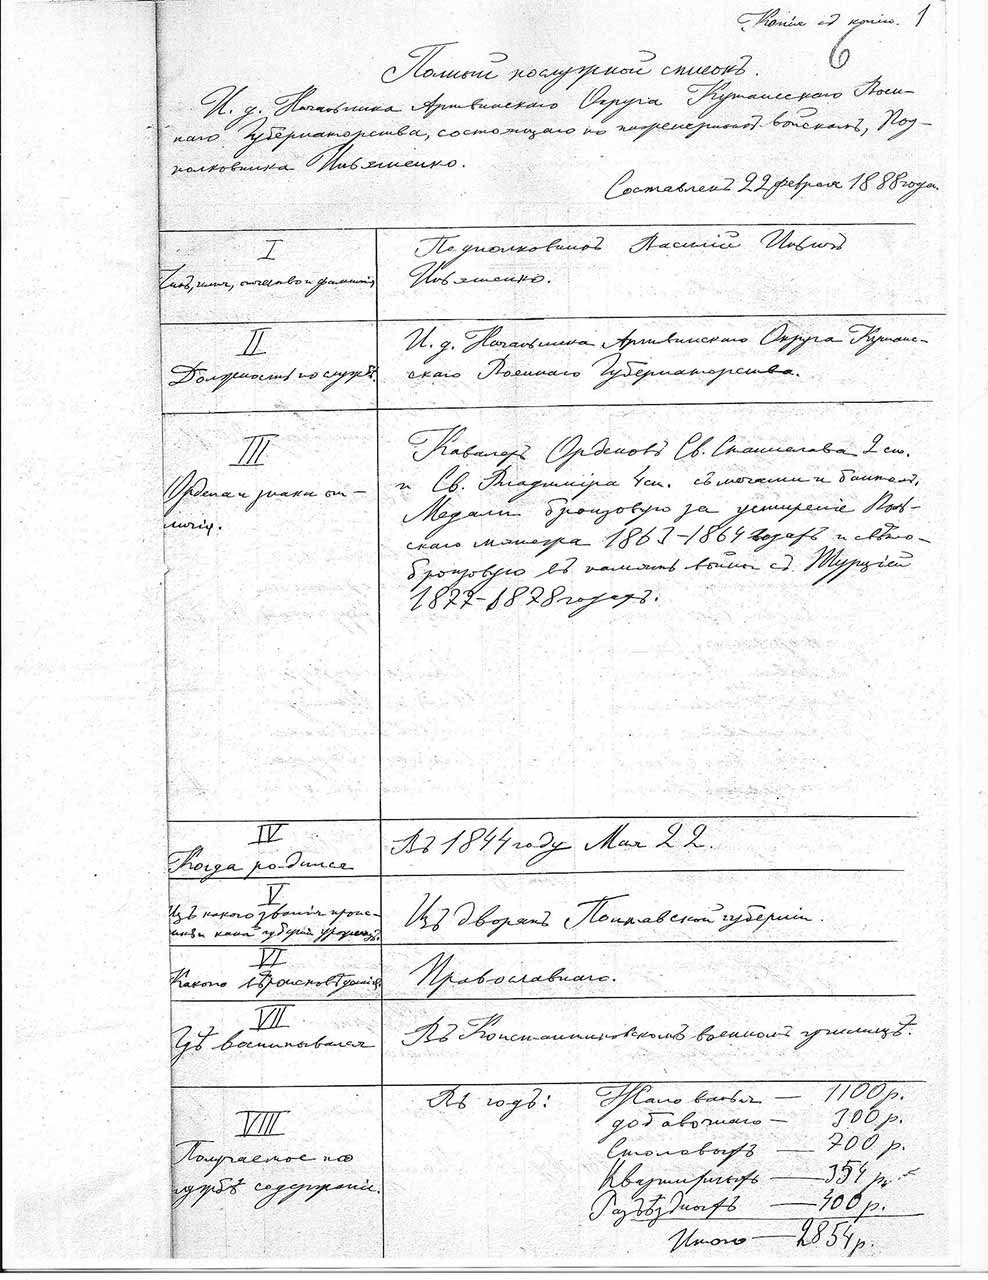 Копія съ копіи. 1
6
Полный послужной списокъ.
И. д. Начальника Артвинскаго Округа Кутаисскаго Воен-
наго Губернаторства, состоящаго по инженернымъ войскамъ, Под-
полковника Ильяшенко.
Составленъ 22 февраля 1888 года.
I
Чинъ, имя, отчество и фамилія,
Подполковникъ Василій
Ильяшенко.
II
Должность по службѣ.
И. д. Начальника Артвинскаго Округа Кутаис-
скаго Военнаго Губернаторства.
III
Ордена и знаки от-
личія.
Кавалеръ Орденовъ Св. Станислава 2 ст.
и Св. Владиміра 4 ст. съ мечами и бантомъ,
Медали бронзовую за усмиреніе Поль-
скаго мятежа 1863-1864 годахъ и свѣтло-
бронзовую въ память войны съ Турціей
1877-1878 годахъ.
IV
Когда родился
Въ 1844 году Мая 22.
V
Изъ какого званія проис-
ходитъ и какой губерніи уроженецъ.
Изъ дворянъ Полтавской губерніи.
VI
Какого вѣроисповѣданія.
Православнаго.
VII
Гдѣ воспитывался
Въ Константиновскомъ военномъ училищѣ.
VIII
Получаемое по
службѣ содержаніе.
Въ годъ: Жалованья — 1100 р.
добавочнаго — 300 р.
Столовыхъ — 700 р.
Квартирныхъ — 354 р.
Разъѣздныхъ — 400 р.
Итого — 2854 р.